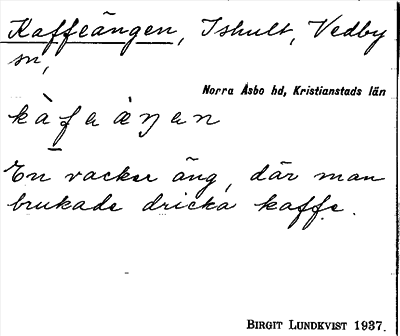 Kaffeängen, Ishult, Vedby
sn,
Norra Åsbo hd, Kristianstads län
En vacker äng, där man
brukade dricka kaffe.
BIRGIT LUNDKVIST 1937.